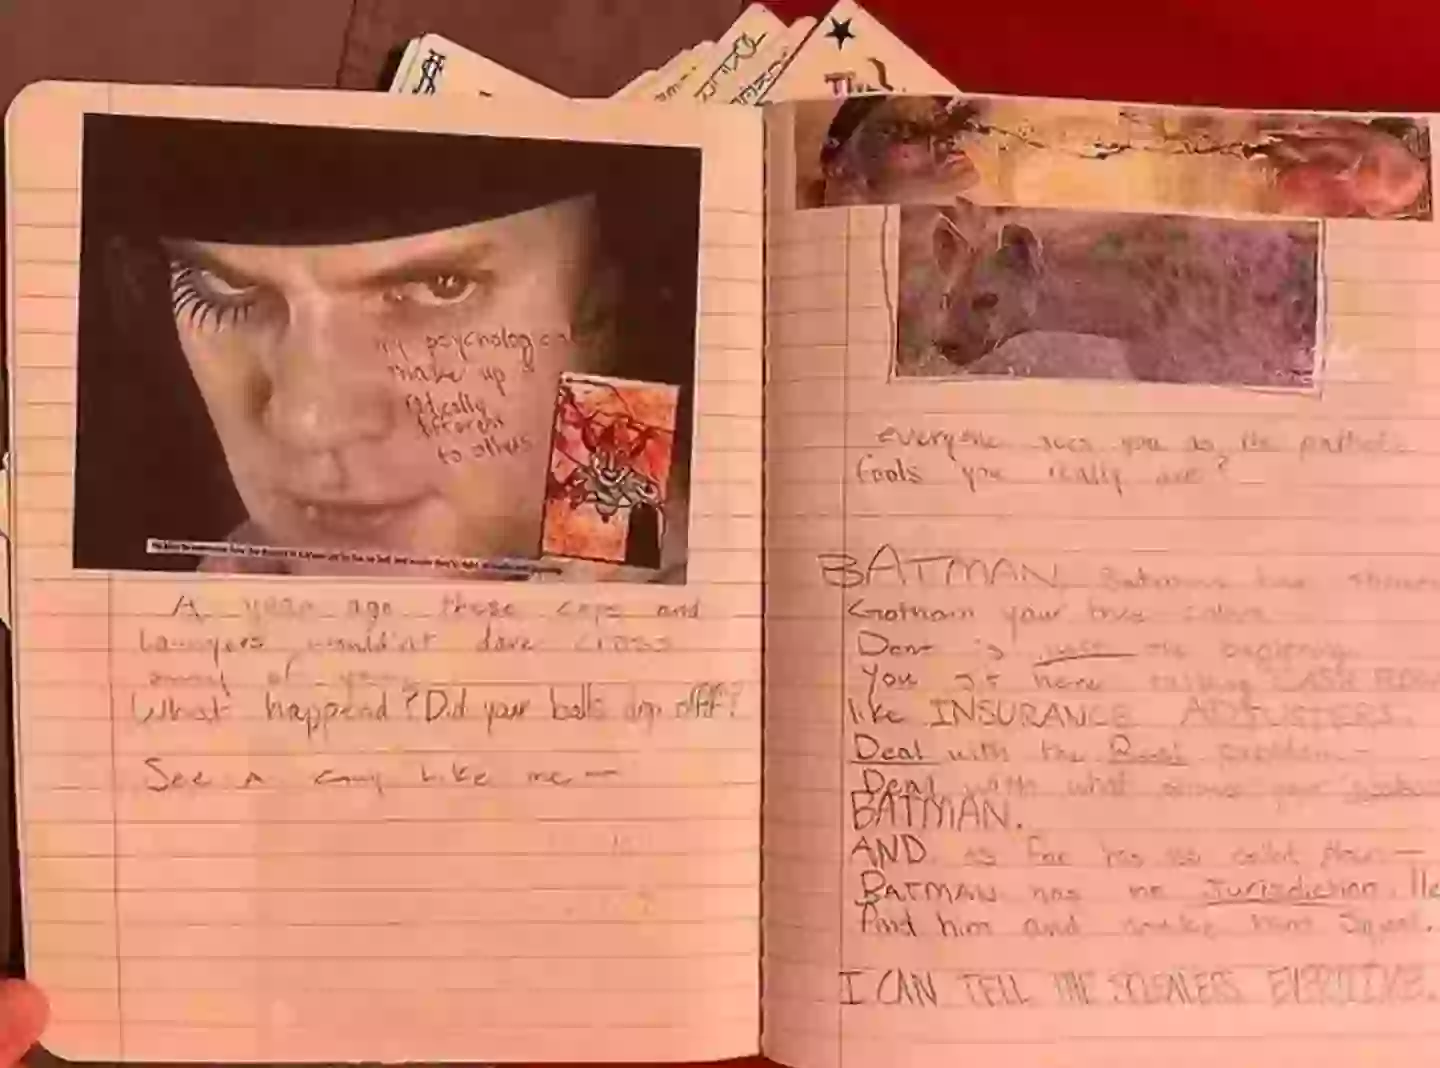 THE
my psychological
make up
radically
different
to others
A year ago these cops and
lawyers wouldn't dare cross
any of you
What happend? Did your balls drop off?
See A guy like me—
everyone sees you as the pathetic
fools you really are?
BATMAN. Batman has shown
Gotham your true colors
Dent is just the beginning
You sit here talking CASH FLOW
like INSURANCE ADJUSTERS.
Deal with the Real problem—
Deal with what
BATMAN.
AND as for his so called plan—
BATMAN has no Jurisdiction. He
find him and make him Squeal.
I CAN TELL THE SQUEALERS EVERYTIME.